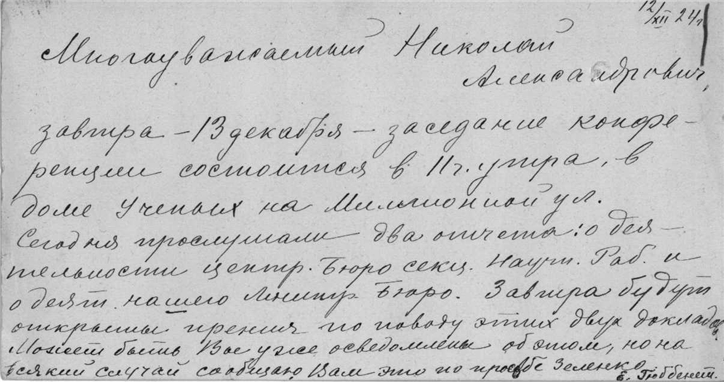 12/XII 24 г.
Многоуважаемый Николай
Александрович,
завтра – 13 декабря – заседание конфе-
ренции состоится в 11 ч. утра, в
доме Ученых на Миллионной ул.
Сегодня прослушали два отчета: о дея-
тельности центр. Бюро секц. Научн. Раб. и
о деят. нашего Ленингр. Бюро. Завтра будут
открыты прения по поводу этих двух докладов.
Может быть Вы уже осведомлены об этом, но на
всякий случай сообщаю Вам это по просьбе Зеленко
Е. Гюббенет.